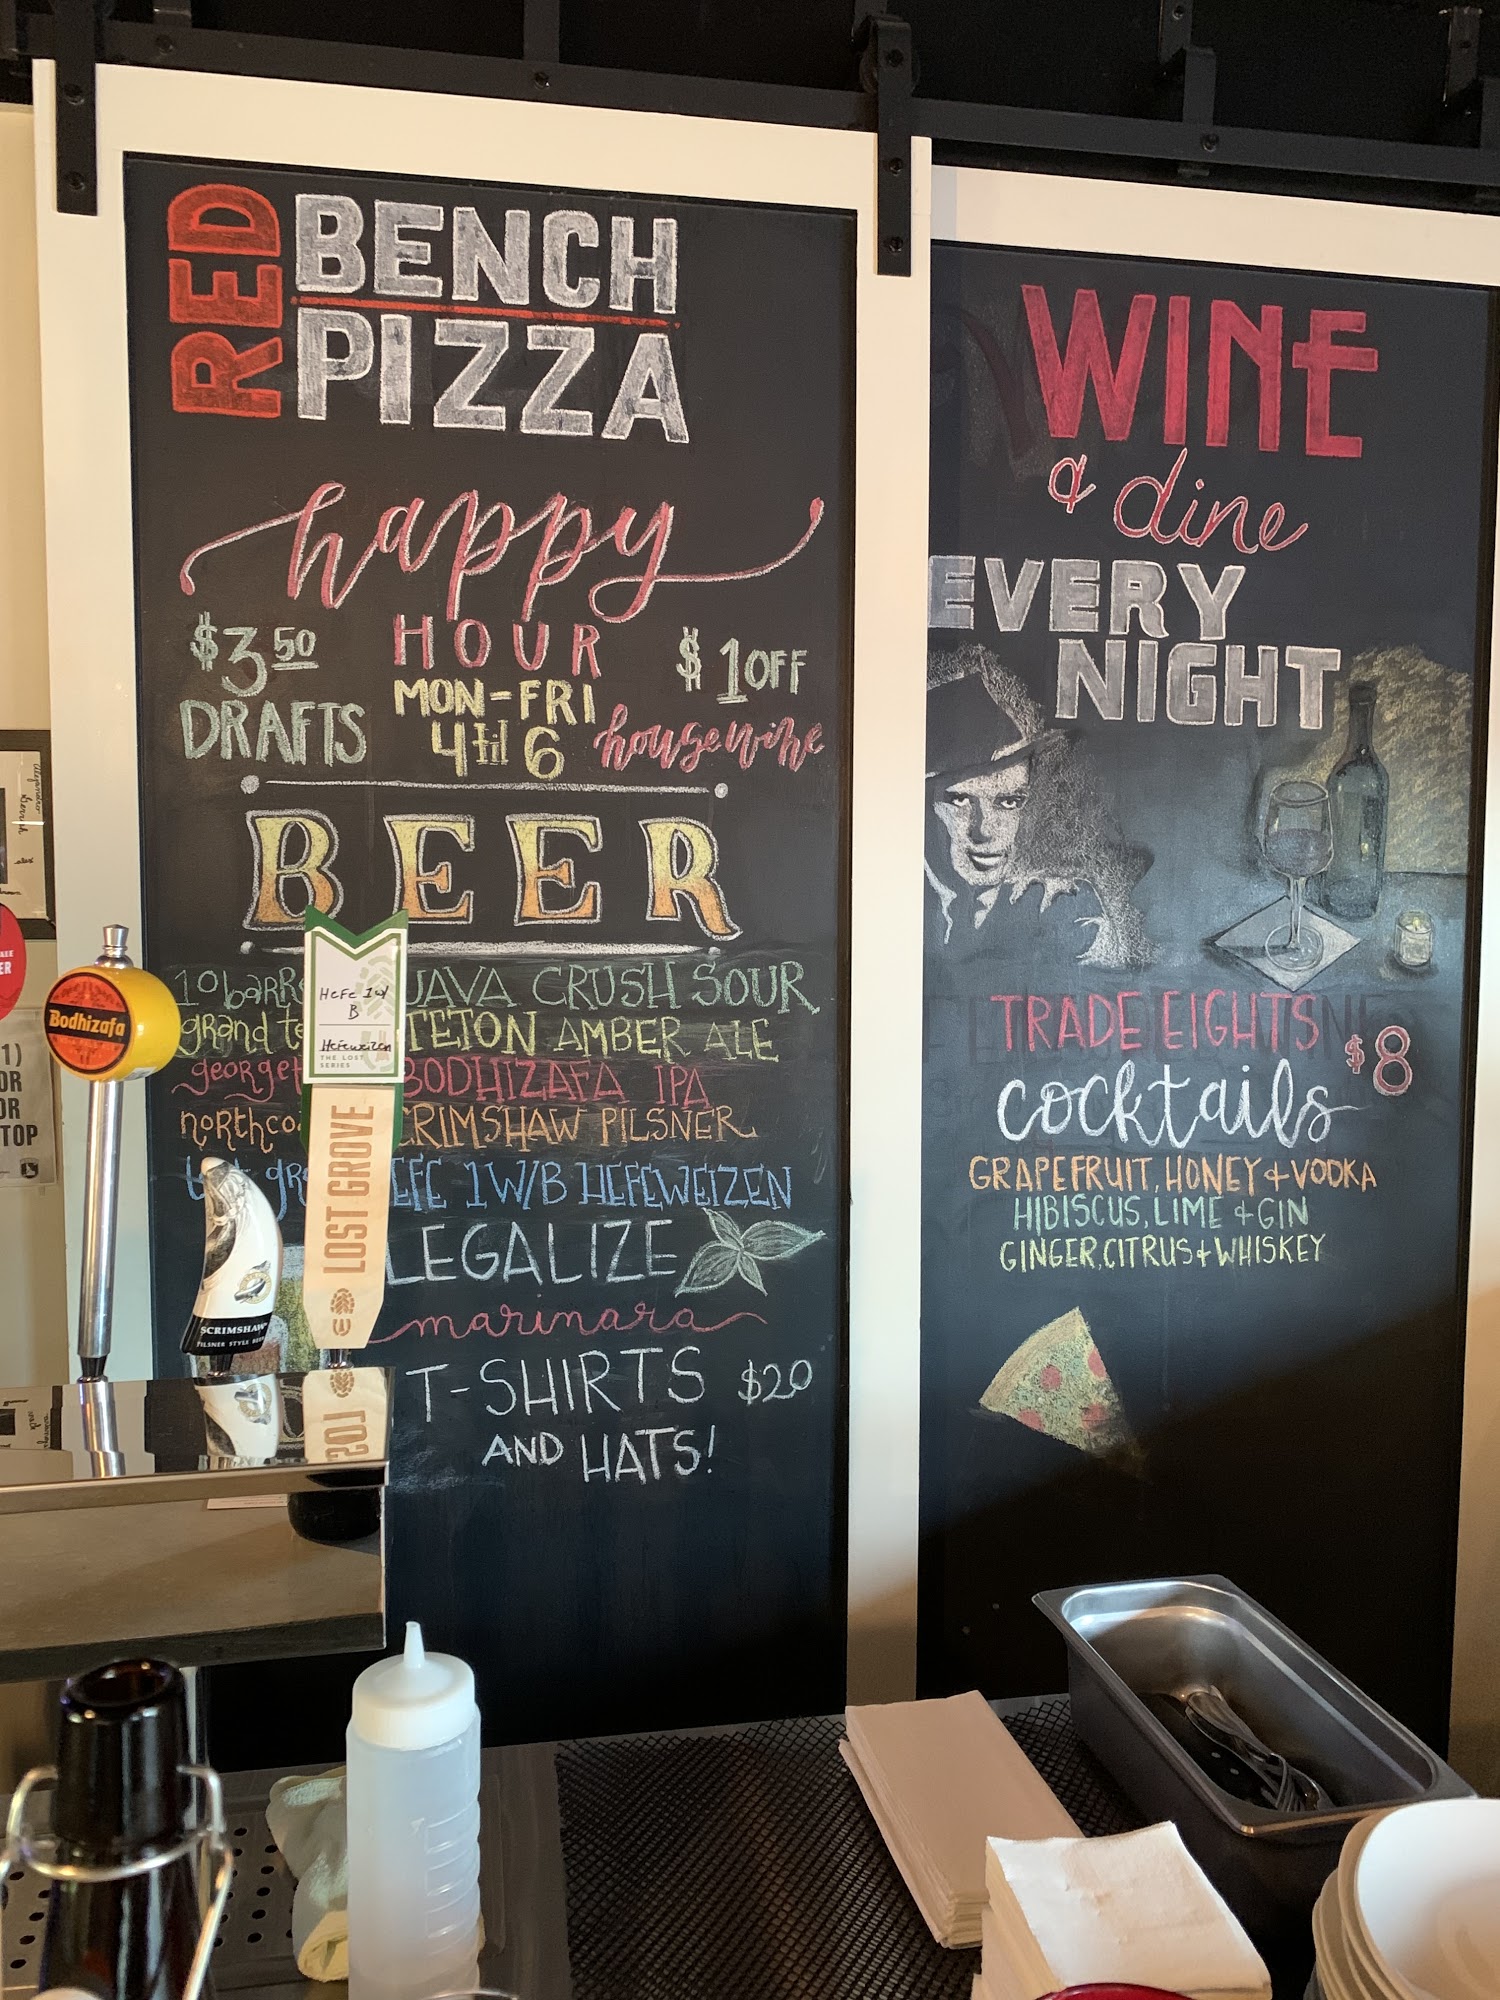 RED
BENCH
PIZZA
happy
HOUR
$3.50
DRAFTS
MON-FRI
4 til 6
$1 OFF
housewine
BEER
10 barr
JAVA CRUSH SOUR
grand te
TETON AMBER ALE
george
BODHIZAFA IPA
northco
CRIMSHAW PILSNER
EFE 1 W/B HEFEWEIZEN
LEGALIZE
marinara
T-SHIRTS $20
AND HATS!
WINE
& dine
EVERY
NIGHT
TRADE EIGHTS
cocktails
$8
GRAPEFRUIT, HONEY & VODKA
HIBISCUS, LIME & GIN
GINGER, CITRUS & WHISKEY
Bodhizafa
HeFe 1 w/
B
Hefeweizen
THE LOST
SERIES
LOST GROVE
SCRIMSHAW
PILSNER STYLE BEER
1)
OR
OR
TOP
ER